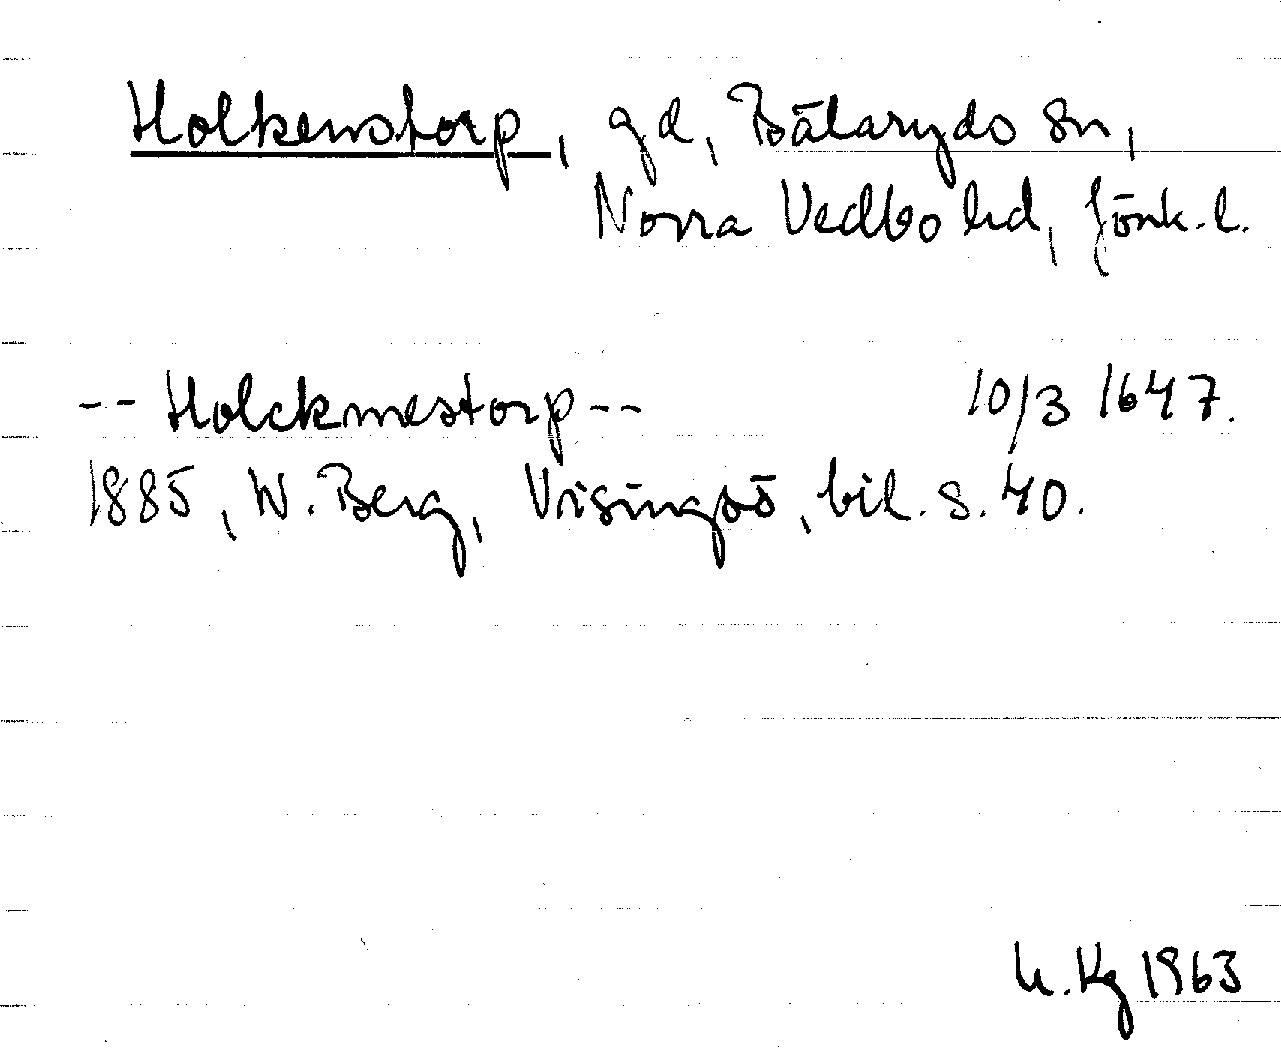 Holkenstorp, gd, Bälaryds sn,
Norra Vedbo hd, Jönk. l.
-- Holckmestorp -- 10/3 1647.
1885, W. Berg, Visingsö, bil. s. 40.
U. Kg 1963